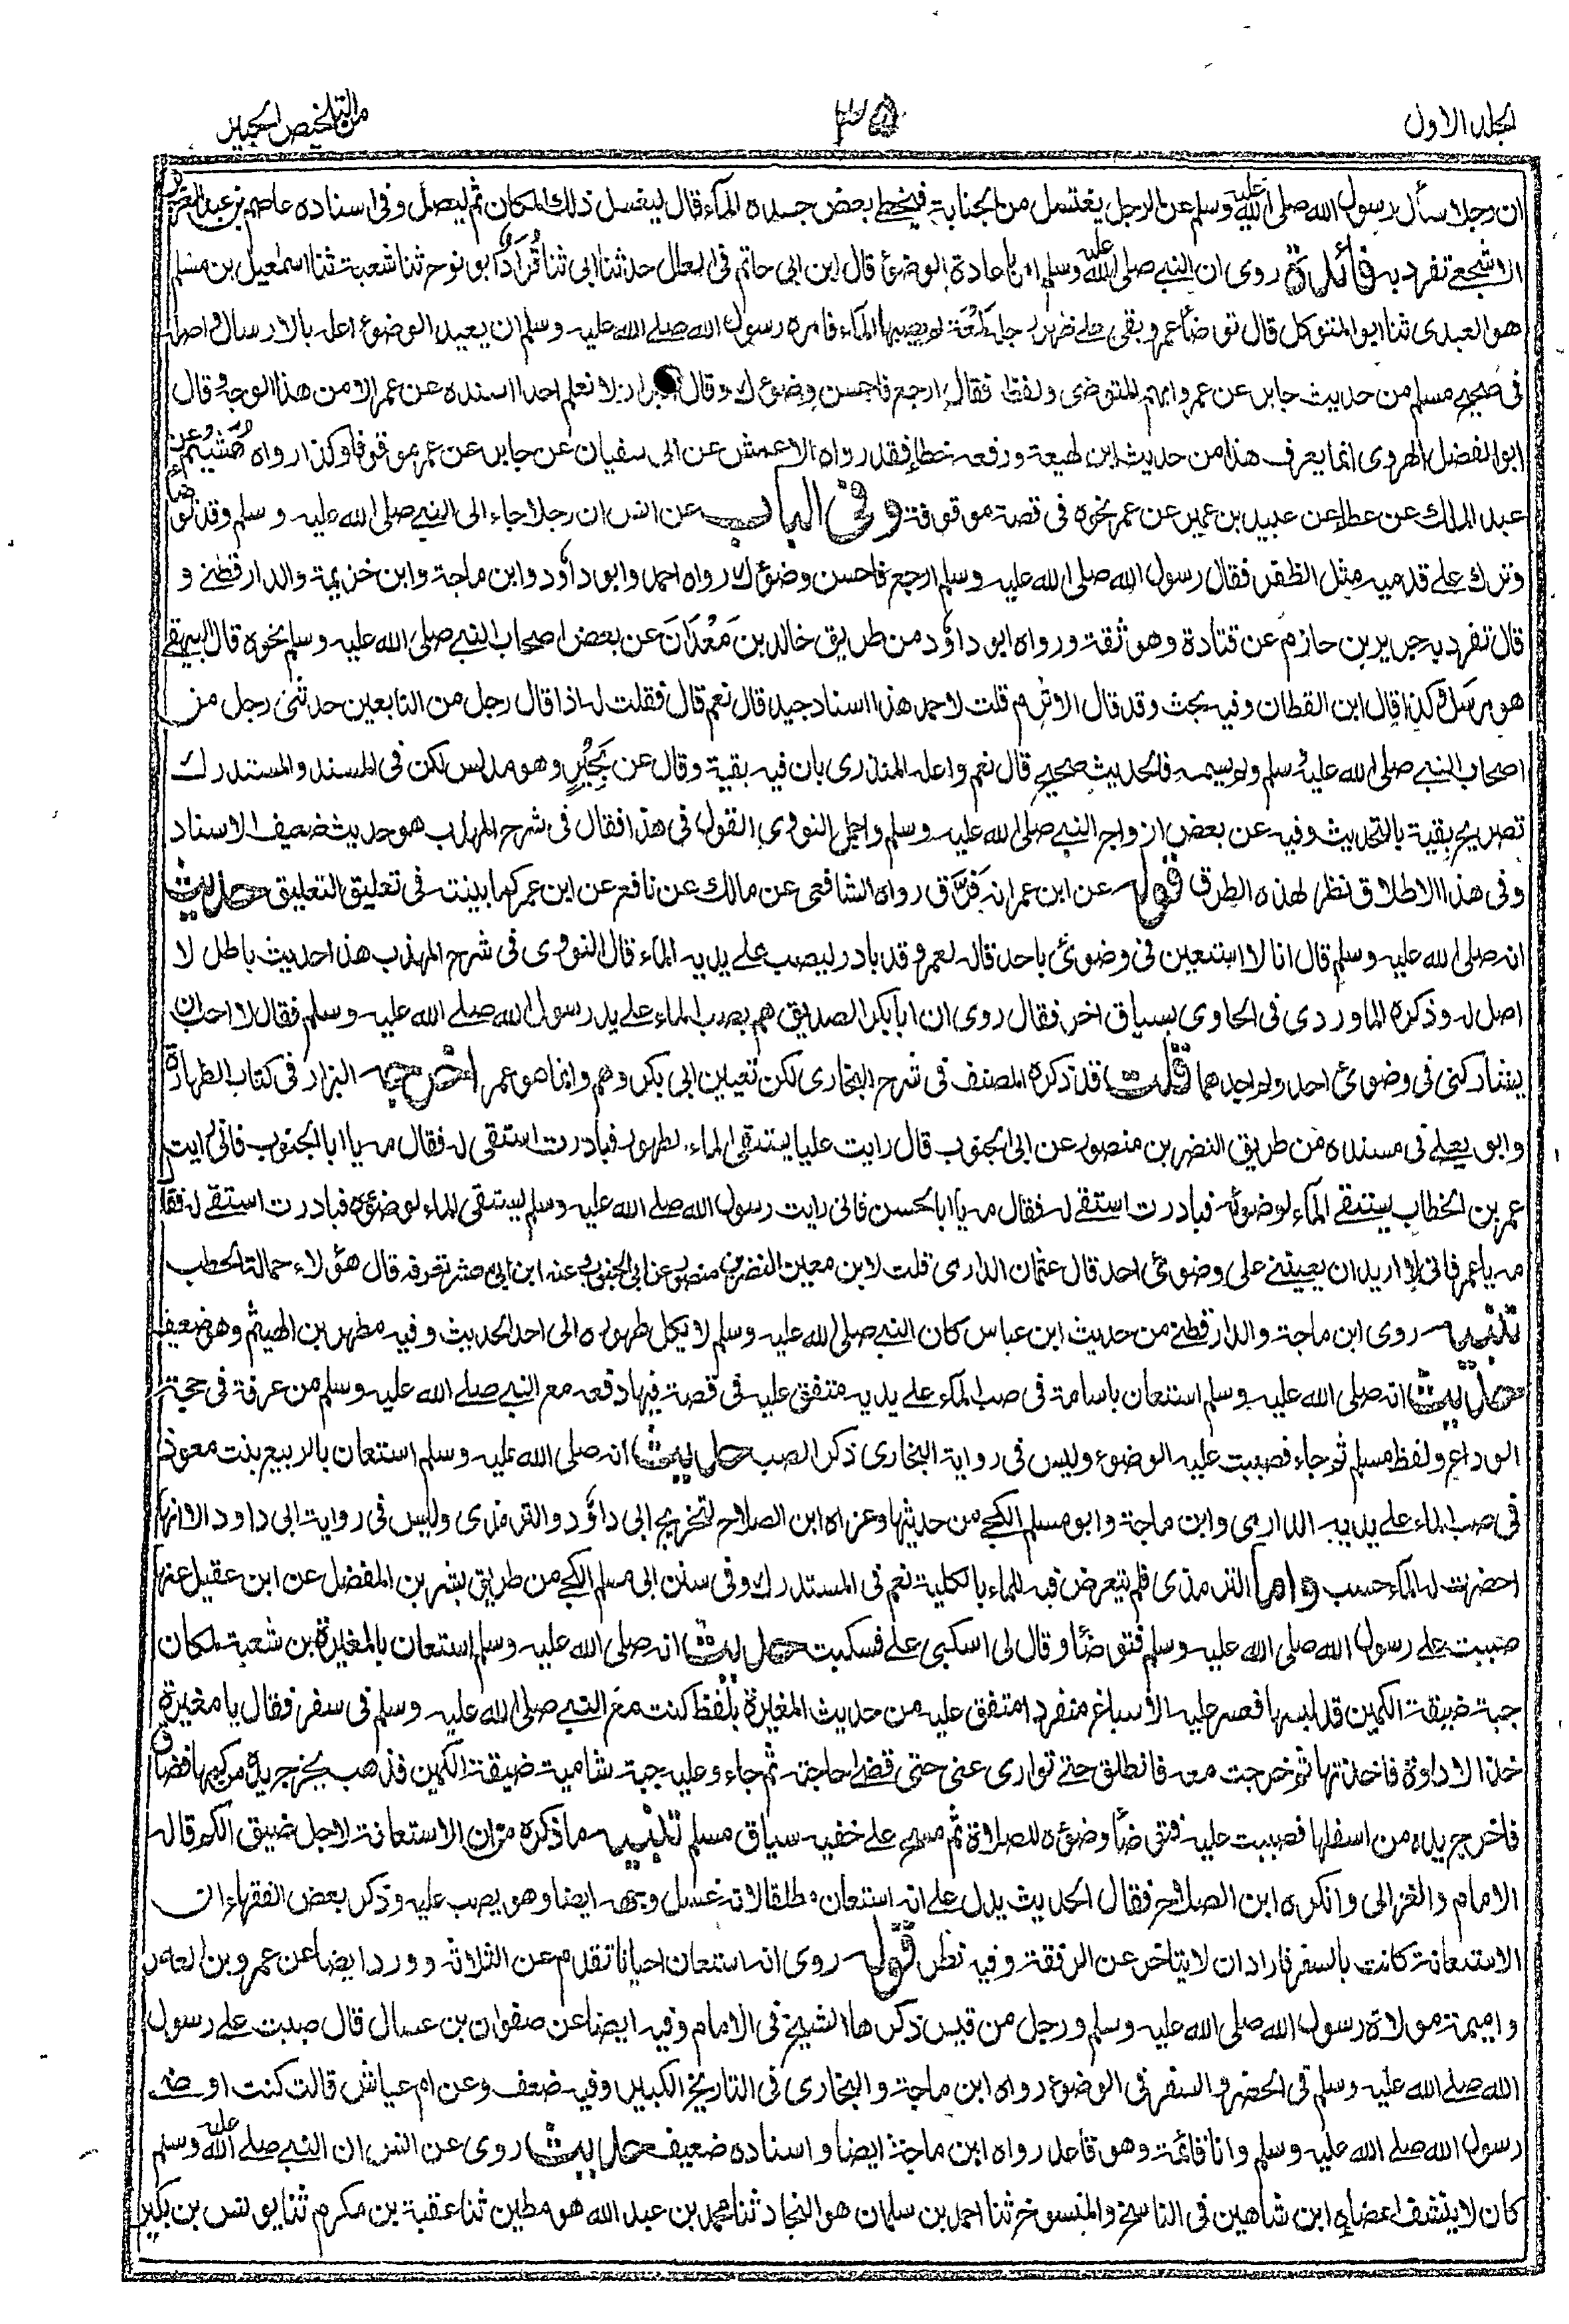 الجلد الاول
٣٥
من التلخيص الحبير
ان رجلا سأل رسول الله صلى الله عليه وسلم عن الرجل يغتسل من الجنابة فيخطئ بعض جسده الماء قال ليغسل ذلك المكان ثم ليصل وفى اسناده عاصم بن عبد العزيز
الاشجعى تفرد به فائدة روى ان النبى صلى الله عليه وسلم امر باعادة الوضوء قال ابن ابى حاتم فى العلل حدثنا ابى ثنا قُرَاد ابو نوح ثنا شعبة ثنا اسمعيل بن مسلم
هو العبدى ثنا ابو المتوكل قال توضأ عمر وبقى على ظهر رجله لمعة لم يصبها الماء فامره رسول الله صلى الله عليه وسلم ان يعيد الوضوء اعله بالارسال واصله
فى صحيح مسلم من حديث جابر عن عمر وابهم المتوضى ولفظه فقال ارجع فاحسن وضوءك وقال البزار لا نعلم احدا اسنده عن عمر الا من هذا الوجه وقال
ابو الفضل الهروى انما يعرف هذا من حديث ابن لهيعة ورفعه خطأ فقد رواه الاعمش عن ابى سفيان عن جابر عن عمر موقوفا وكذا رواه هُشَيم عن
عبد الملك عن عطاء عن عبيد بن عمير عن عمر نحوه فى قصة موقوفة وفى الباب عن انس ان رجلا جاء الى النبى صلى الله عليه وسلم وقد توضأ
وترك على قدميه مثل الظفر فقال رسول الله صلى الله عليه وسلم ارجع فاحسن وضوءك رواه احمد وابو داود وابن ماجة وابن خزيمة والدارقطنى و
قال تفرد به جرير بن حازم عن قتادة وهو ثقة ورواه ابو داود من طريق خالد بن مَعْدَانَ عن بعض اصحاب النبى صلى الله عليه وسلم نحوه قال البيهقى
هو مرسل وكذا قال ابن القطان وفيه بحث وقد قال الاثرم قلت لاحمد هذا اسناد جيد قال نعم قال فقلت له اذا قال رجل من التابعين حدثنى رجل من
اصحاب النبى صلى الله عليه وسلم ولم يسمه فالحديث صحيح قال نعم واعله المنذرى بان فيه بقية وقال عن بَحِيْرٍ وهو مدلس لكن فى المسند والمستدرك
تصريح بقية بالتحديث وفيه عن بعض ازواج النبى صلى الله عليه وسلم واجمل النووى القول فى هذا فقال فى شرح المهذب هو حديث ضعيف الاسناد
وفى هذا الاطلاق نظر لهذه الطرق قوله عن ابن عمر انه فَرَّق رواه الشافعى عن مالك عن نافع عن ابن عمر كما بينته فى تعليق التعليق حديث
انه صلى الله عليه وسلم قال انا لا استعين فى وضوئى باحد قاله لعمر وقد بادر ليصب على يديه الماء قال النووى فى شرح المهذب هذا حديث باطل لا
اصل له وذكره الماوردى فى الحاوى بسياق اخر فقال روى ان ابا بكر الصديق هم بصب الماء على يد رسول الله صلى الله عليه وسلم فقال لا احب ان
يشاركنى فى وضوئى احد ولم اجدهما قلت قد ذكره المصنف فى شرح البخارى لكن تعيين ابى بكر وهم وانما هو عمر اخرجه البزار فى كتاب الطهارة
وابو يعلى فى مسنده من طريق النضر بن منصور عن ابى الجنوب قال رايت عليا يستقى الماء لطهوره فبادرت استقى له فقال مه يا ابا الجنوب فانى رايت
عمر بن الخطاب يستقى الماء لوضوئه فبادرت استقى له فقال مه يا ابا الحسن فانى رايت رسول الله صلى الله عليه وسلم يستقى الماء لوضوءه فبادرت استقى له فقا
مه يا عمر فانى لا اريد ان يعيننى على وضوئى احد قال عثمان الدارمى قلت لابن معين النضر بن منصور عن ابى الجنوب وعنه ابن ابى معشر تعرفه قال هؤلاء حمالة الحطب
تنبيه روى ابن ماجة والدارقطنى من حديث ابن عباس كان النبى صلى الله عليه وسلم لا يكل طهوره الى احد الحديث وفيه مطهر بن الهيثم وهو ضعيف
حديث انه صلى الله عليه وسلم استعان باسامة فى صب الماء على يديه متفق عليه فى قصة فيها دفعه مع النبى صلى الله عليه وسلم من عرفة فى حجة
الوداع ولفظ مسلم ثم جاء فصببت عليه الوضوء وليس فى رواية البخارى ذكر الصب حديث انه صلى الله عليه وسلم استعان بالربيع بنت معوذ
فى صب الماء على يديه الدارمى وابن ماجة وابو مسلم الكجى من حديثها وعزاه ابن الصلاح لتخريج ابى داؤد والترمذى وليس فى رواية ابى داود الا انها
احضرت له الماء حسب واما الترمذى فلم يتعرض فيه للماء بالكلية نعم فى المستدرك وفى سنن ابى مسلم الكجى من طريق بشر بن المفضل عن ابن عقيل عنها
صببت على رسول الله صلى الله عليه وسلم فتوضأ وقال لى اسكبى على فسكبت حديث انه صلى الله عليه وسلم استعان بالمغيرة بن شعبة لمكان
جبة ضيقة الكمين قد لبسها فعسر عليه الاسباغ منفردا متفق عليه من حديث المغيرة بلفظ كنت مع النبى صلى الله عليه وسلم فى سفر فقال يا مغيرة
خذ الاداوة فاخذتها ثم خرجت معه فانطلق حتى توارى عنى حتى قضى حاجته ثم جاء وعليه جبة شامية ضيقة الكمين فذهب يخرج يده من كمها فضاق
فاخرج يده من اسفلها فصببت عليه فتوضأ وضوءه للصلاة ثم مسح على خفيه سياق مسلم تنبيه ما ذكره من ان الاستعانة لاجل ضيق الكم قاله
الامام والغزالى وانكره ابن الصلاح فقال الحديث يدل على انه استعان مطلقا لانه غسل وجهه ايضا وهو يصب عليه وذكر بعض الفقهاء ان
الاستعانة كانت بالسفر فاراد ان لا يتاخر عن الرفقة وفيه نظر قوله روى انه استعان احيانا تقدم عن الثلاثة وورد ايضا عن عمرو بن العاص
واميمة مولاة رسول الله صلى الله عليه وسلم ورجل من قيس ذكرها الشيخ فى الامام وفيه ايضا عن صفوان بن عسال قال صببت على رسول
الله صلى الله عليه وسلم فى الحضر والسفر فى الوضوء رواه ابن ماجة والبخارى فى التاريخ الكبير وفيه ضعف وعن ام عياش قالت كنت اوضى
رسول الله صلى الله عليه وسلم وانا قائمة وهو قاعد رواه ابن ماجة ايضا واسناده ضعيف حديث روى عن انس ان النبى صلى الله عليه وسلم
كان لا ينشف اعضاءه ابن شاهين فى الناسخ والمنسوخ ثنا احمد بن سلمان هو النجاد ثنا محمد بن عبد الله هو مطين ثنا عقبة بن مكرم ثنا يونس بن بكير